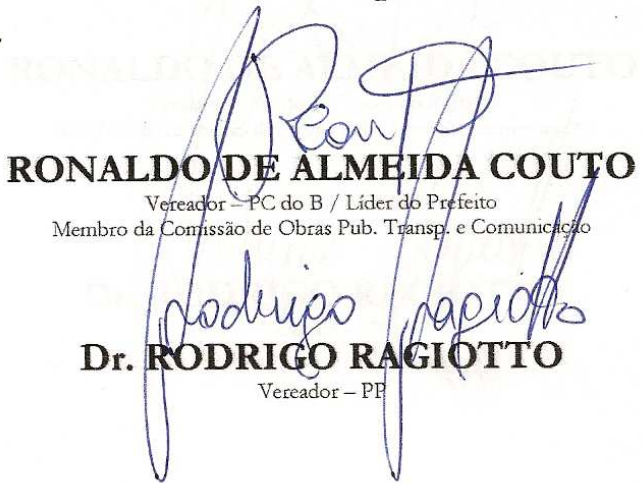 RONALDO DE ALMEIDA COUTO
Vereador – PC do B / Líder do Prefeito
Membro da Comissão de Obras Pub. Transp. e Comunicação
Rodrigo Ragiotto
Dr. RODRIGO RAGIOTTO
Vereador – PP